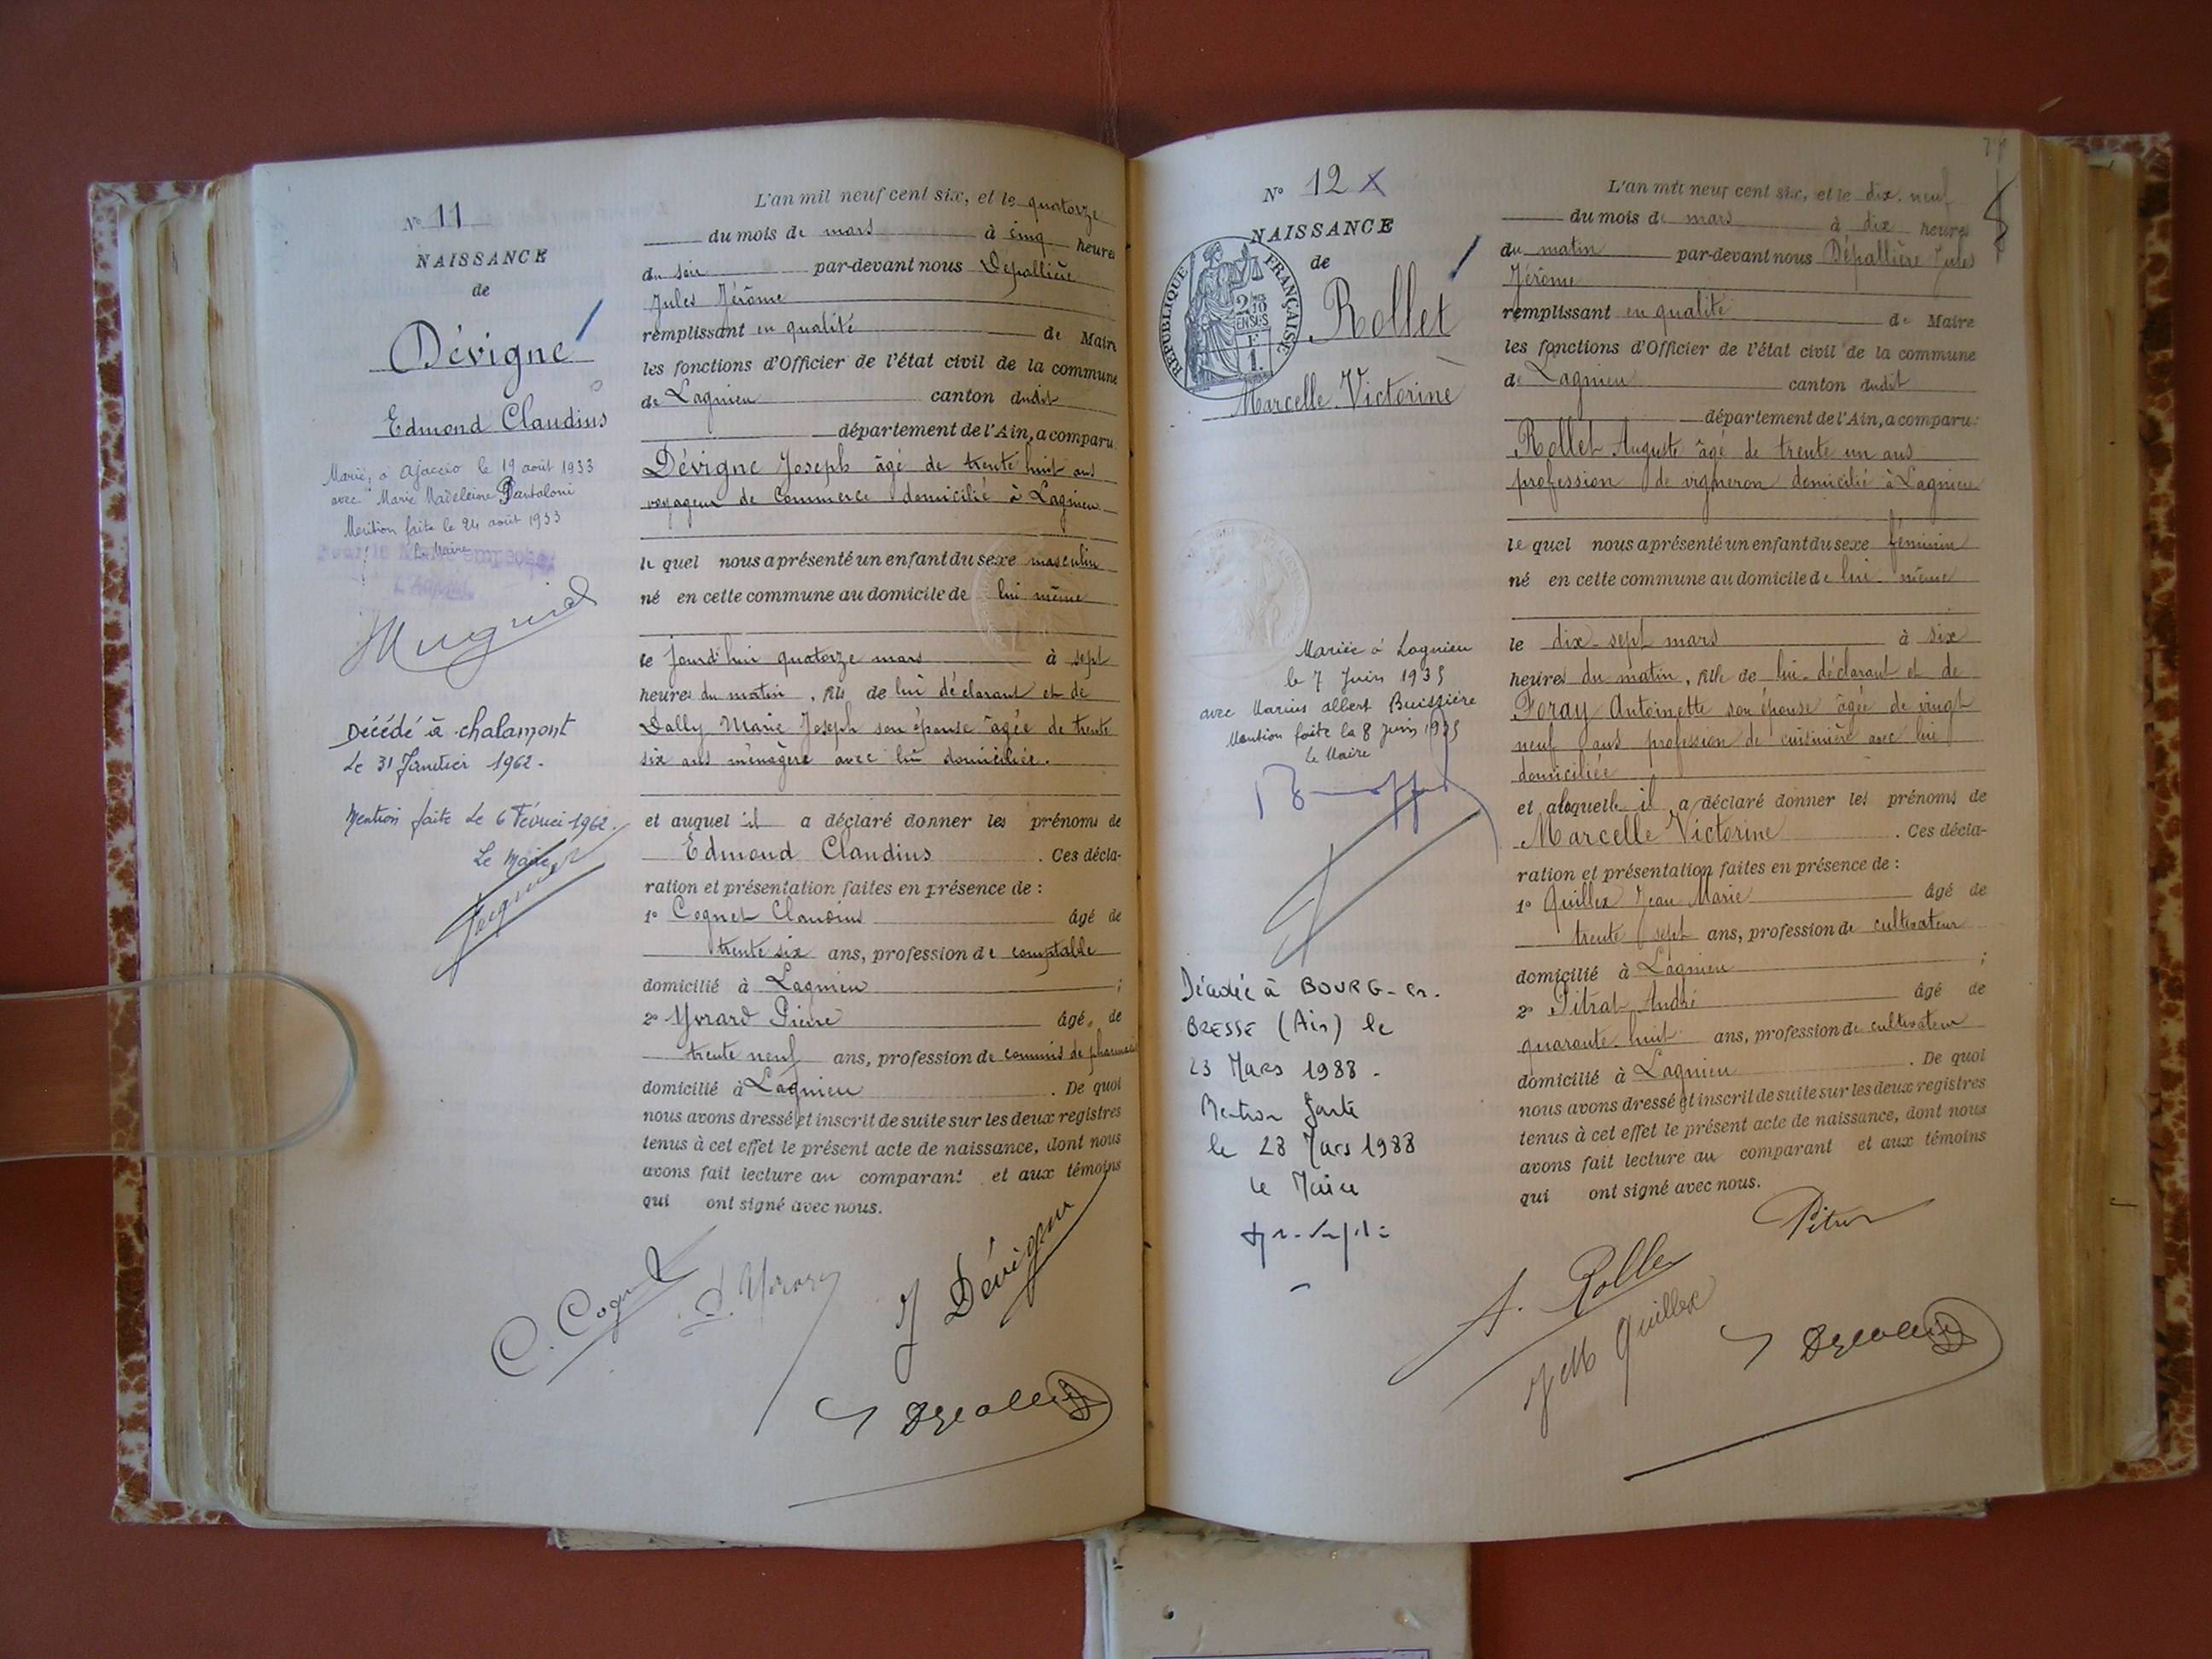 N° 11
NAISSANCE
de
Dévigne
Edmond Claudius
Marié, à Ajaccio le 19 août 1933
avec Marie Madeleine Pantaloni
Mention faite le 24 août 1933
Le Maire
Décédé à chalamont
Le 31 Janvier 1962.
Mention faite Le 6 Février 1962.
Le Maire
L'an mil neuf cent six, et le quatorze
du mois de mars à cinq heures
du soir par-devant nous Depallière
Jules Jérôme
remplissant en qualité de Maire
les fonctions d'Officier de l'état civil de la commune
de Lagnieu canton dudit
département de l'Ain, a comparu:
Dévigne Joseph âgé de trente huit ans
voyageur de Commerce domicilié à Lagnieu
le quel nous a présenté un enfant du sexe masculin
né en cette commune au domicile de lui même
le jourd'hui quatorze mars à sept
heures du matin, fils de lui déclarant et de
Dally Marie Joseph son épouse âgée de trente
six ans ménagère avec lui domiciliée.
et auquel il a déclaré donner les prénoms de
Edmond Claudius. Ces décla-
ration et présentation faites en présence de :
1° Cognet Claudius âgé de
trente six ans, profession de comptable
domicilié à Lagnieu ;
2° Yvrard Pierre âgé de
trente neuf ans, profession de commis de pharmacie
domicilié à Lagnieu. De quoi
nous avons dressé et inscrit de suite sur les deux registres
tenus à cet effet le présent acte de naissance, dont nous
avons fait lecture au comparant et aux témoins
qui ont signé avec nous.
C. Cognet
J Dévigne
N° 12 X
NAISSANCE
de
RÉPUBLIQUE FRANÇAISE
2/10 EN SUS
1 F
Rollet
Marcelle Victorine
Mariée à Lagnieu
le 7 Juin 1935
avec Marius Albert Buissière
Mention faite le 8 Juin 1935
Le Maire
Décédée à BOURG-en-
BRESSE (Ain) le
23 Mars 1988 -
Mention faite
le 28 Mars 1988
le Maire
L'an mil neuf cent six, et le dix-neuf
du mois de mars à dix heures
du matin par-devant nous Dépallière Jules
Jérôme
remplissant en qualité de Maire
les fonctions d'Officier de l'état civil de la commune
de Lagnieu canton dudit
département de l'Ain, a comparu:
Rollet Auguste âgé de trente un ans
profession de vigneron domicilié à Lagnieu
le quel nous a présenté un enfant du sexe féminin
né en cette commune au domicile de lui-même
le dix-sept mars à six
heures du matin, fille de lui déclarant et de
Foray Antoinette son épouse âgée de vingt
neuf ans profession de cuisinière avec lui
domiciliée
et a laquelle il a déclaré donner les prénoms de
Marcelle Victorine. Ces décla-
ration et présentation faites en présence de :
1° Quillex Jean Marie âgé de
trente sept ans, profession de cultivateur
domicilié à Lagnieu ;
2° Pitrat André âgé de
quarante-huit ans, profession de cultivateur
domicilié à Lagnieu. De quoi
nous avons dressé et inscrit de suite sur les deux registres
tenus à cet effet le présent acte de naissance, dont nous
avons fait lecture au comparant et aux témoins
qui ont signé avec nous.
A. Rollet
JM Quillex